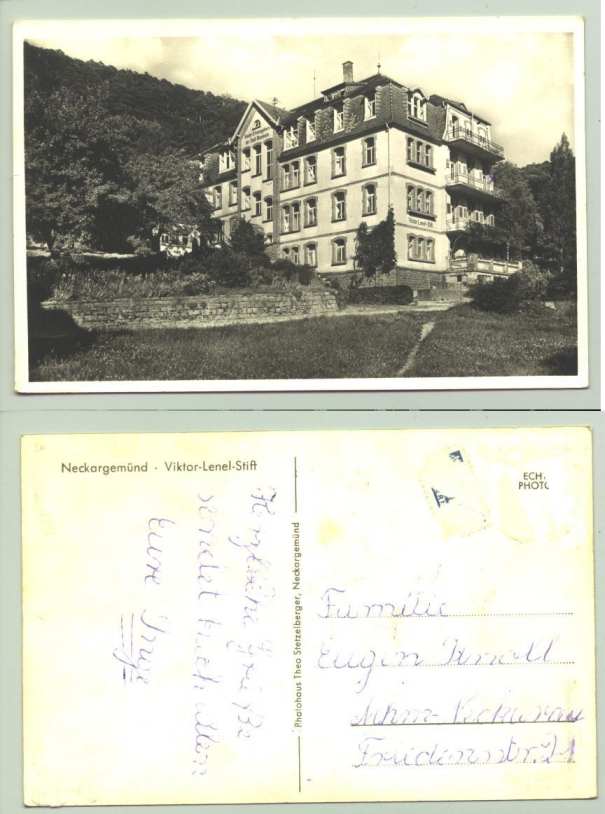 Viktor-Lenel-Stift
Neckargemünd · Viktor-Lenel-Stift
ECH
PHOTO
Photohaus Theo Stetzelberger, Neckargemünd
Herzliche Grüße
sendet Euch allen
Eure Inge
Familie
Eugen
Mhm-Neckarau
Friedenstr. 21